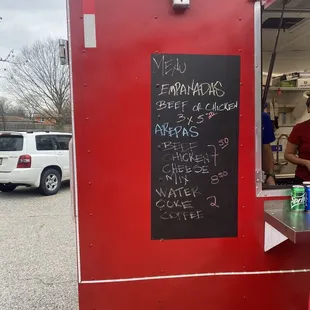 MENU
EMPANADAS
BEEF OR CHICKEN
3 x 5.00
AREPAS
BEEF
CHICKEN 7.50
CHEESE
MIX 8.50
WATER
COKE 2
COFFEE
Sprite